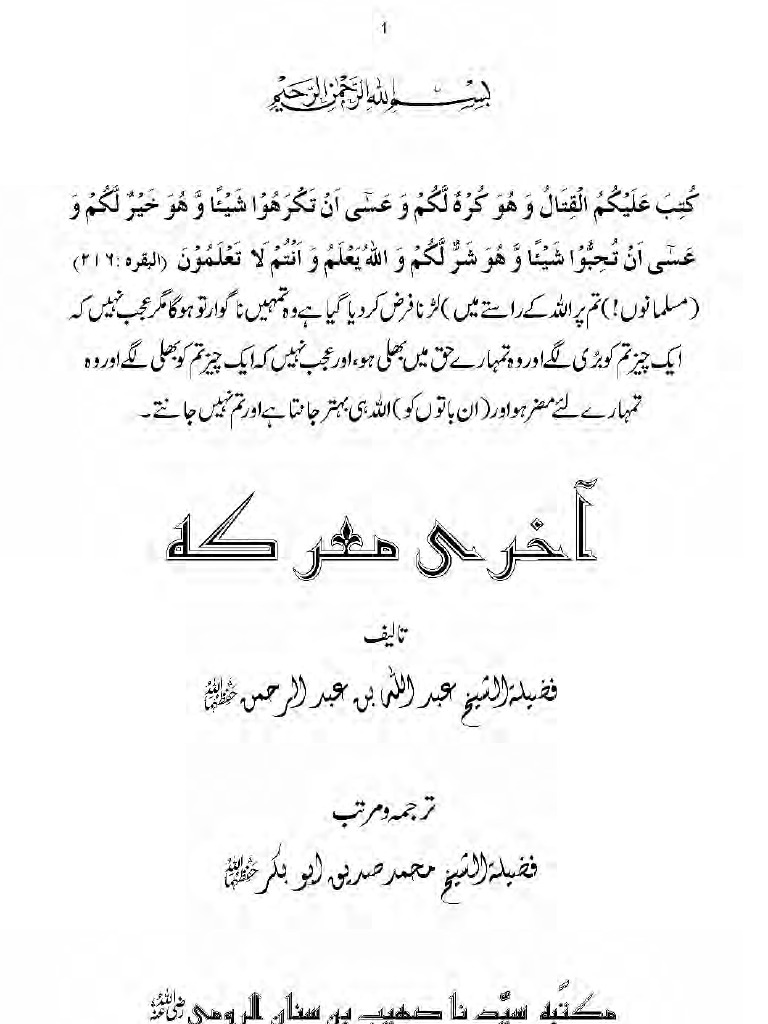 1
بسم الله الرحمن الرحيم
كُتِبَ عَلَيْكُمُ الْقِتَالُ وَ هُوَ كُرْهٌ لَّكُمْ وَ عَسٰٓى اَنْ تَكْرَهُوْا شَيْئًا وَّ هُوَ خَيْرٌ لَّكُمْ وَ
عَسٰٓى اَنْ تُحِبُّوْا شَيْئًا وَّ هُوَ شَرٌّ لَّكُمْ وَ اللهُ يَعْلَمُ وَ اَنْتُمْ لَا تَعْلَمُوْنَ (البقرہ:۲۱۶)
(مسلمانوں!)تم پر اللہ کے راستے میں)لڑنا فرض کر دیا گیا ہے وہ تمہیں ناگوار تو ہوگا مگر عجب نہیں کہ
ایک چیز تم کو بُری لگے اور وہ تمہارے حق میں بھلی ہو،اور عجب نہیں کہ ایک چیز تم کو بھلی لگے اور وہ
تمہارے لئے مضر ہو اور(ان باتوں کو)اللہ ہی بہتر جانتا ہے اور تم نہیں جانتے۔
آخری معرکہ
تالیف
فضیلۃ الشیخ عبد اللہ بن عبد الرحمن حفظہا اللہ
ترجمہ ومرتب
فضیلۃ الشیخ محمد صدیق ابو بکر حفظہا اللہ
مکتبہ سیّدنا صهیب بن سنان الرومی رضی اللہ عنہ